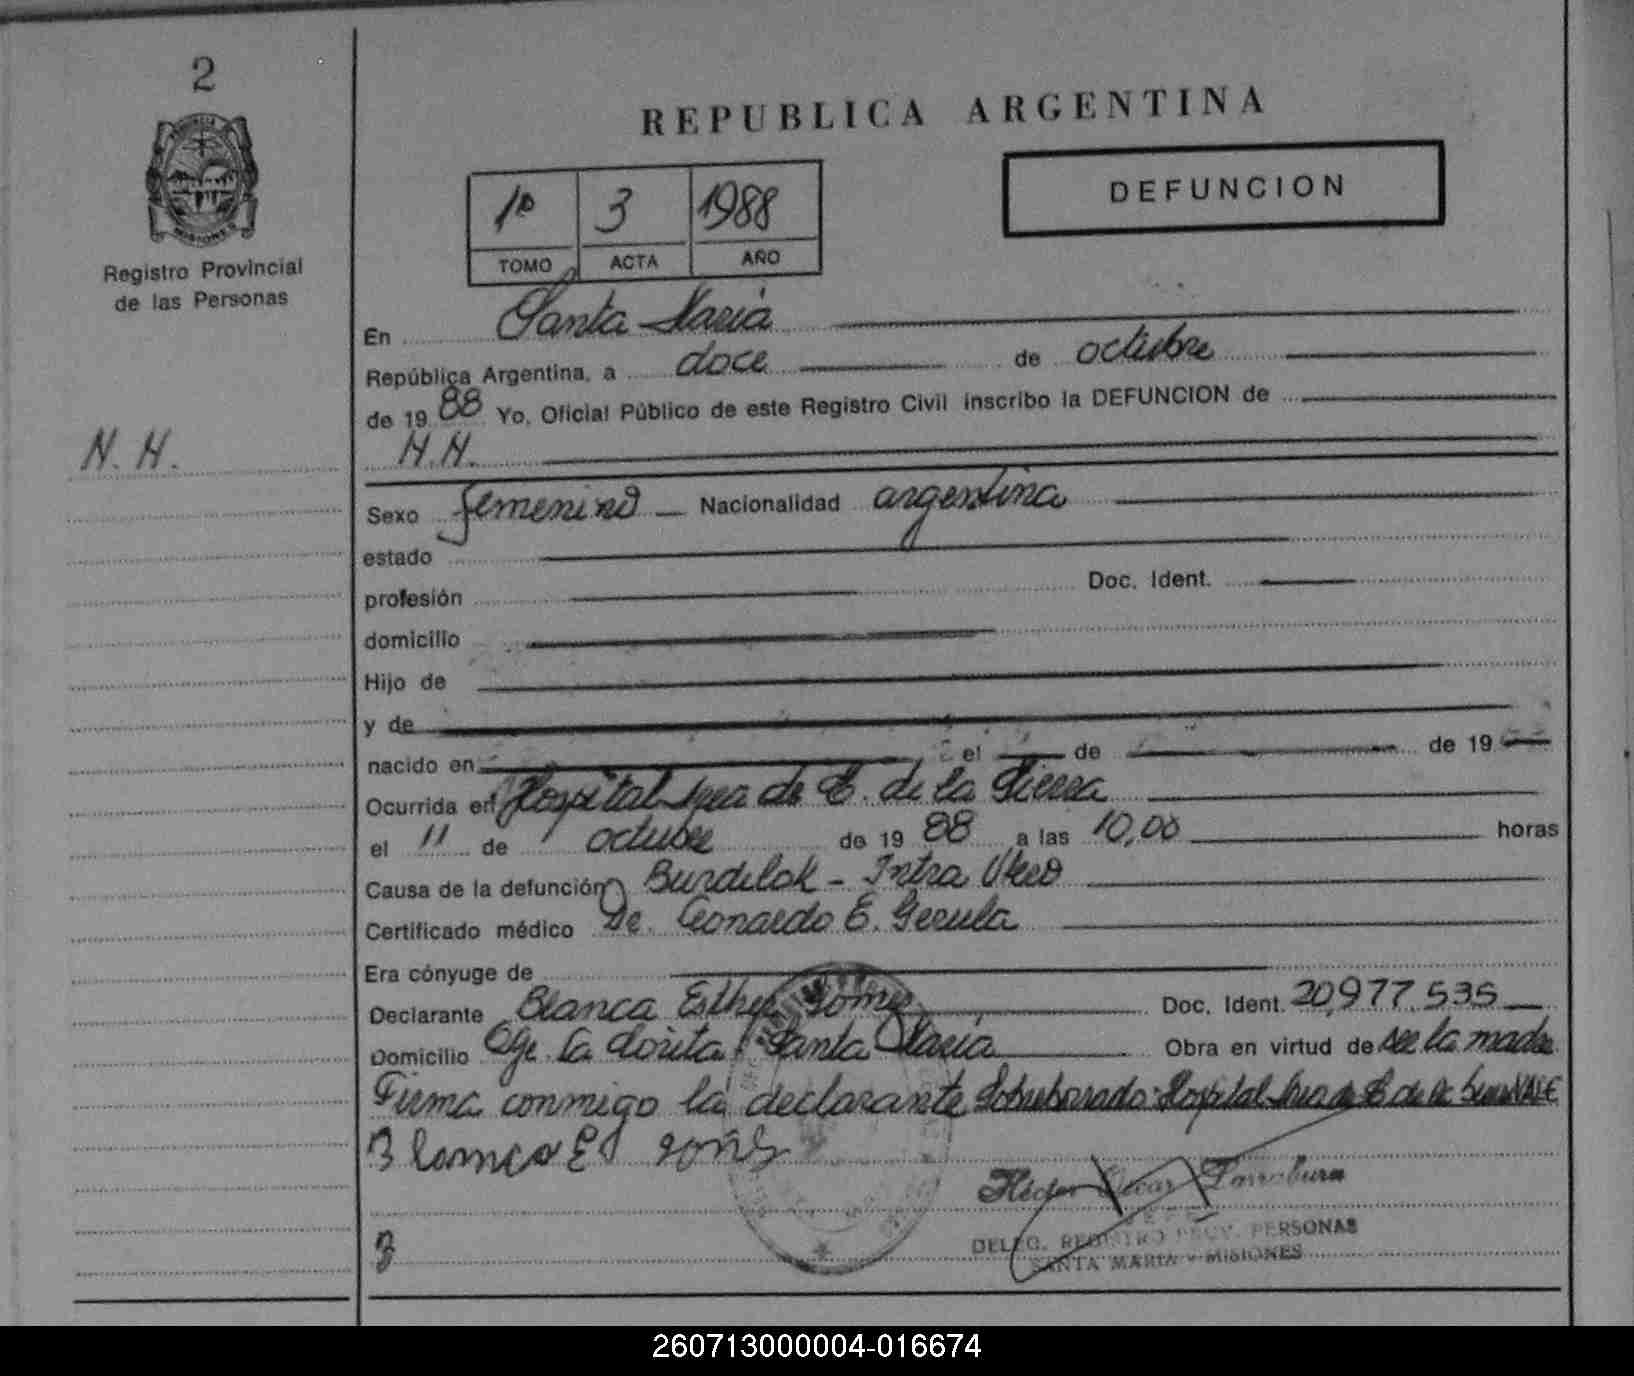 2
PROVINCIA
MISIONES
Registro Provincial
de las Personas
N. N.
REPUBLICA ARGENTINA
DEFUNCION
1º 3 1988
TOMO ACTA AÑO
En Santa María
República Argentina, a doce de octubre
de 1988 Yo, Oficial Público de este Registro Civil inscribo la DEFUNCION de
N.N.
Sexo femenino Nacionalidad argentina
estado
profesión Doc. Ident.
domicilio
Hijo de
y de
nacido en el de de 19
Ocurrida en Hospital Area de C. de la Sierra
el 11 de octubre de 1988 a las 10,00 horas
Causa de la defunción Intra Utero
Certificado médico Dr. Leonardo E. Gerula
Era cónyuge de
Declarante Blanca Esther Gomez Doc. Ident. 20,977.535
Domicilio La Corita Santa María Obra en virtud de ser la madre
Firma conmigo la declarante Sobreborrado: Hospital Area de C de la Sierra VALE
Blanca E gomz
Héctor Oscar
DELEG. REGISTRO PROV. PERSONAS
SANTA MARIA - MISIONES
3
260713000004-016674